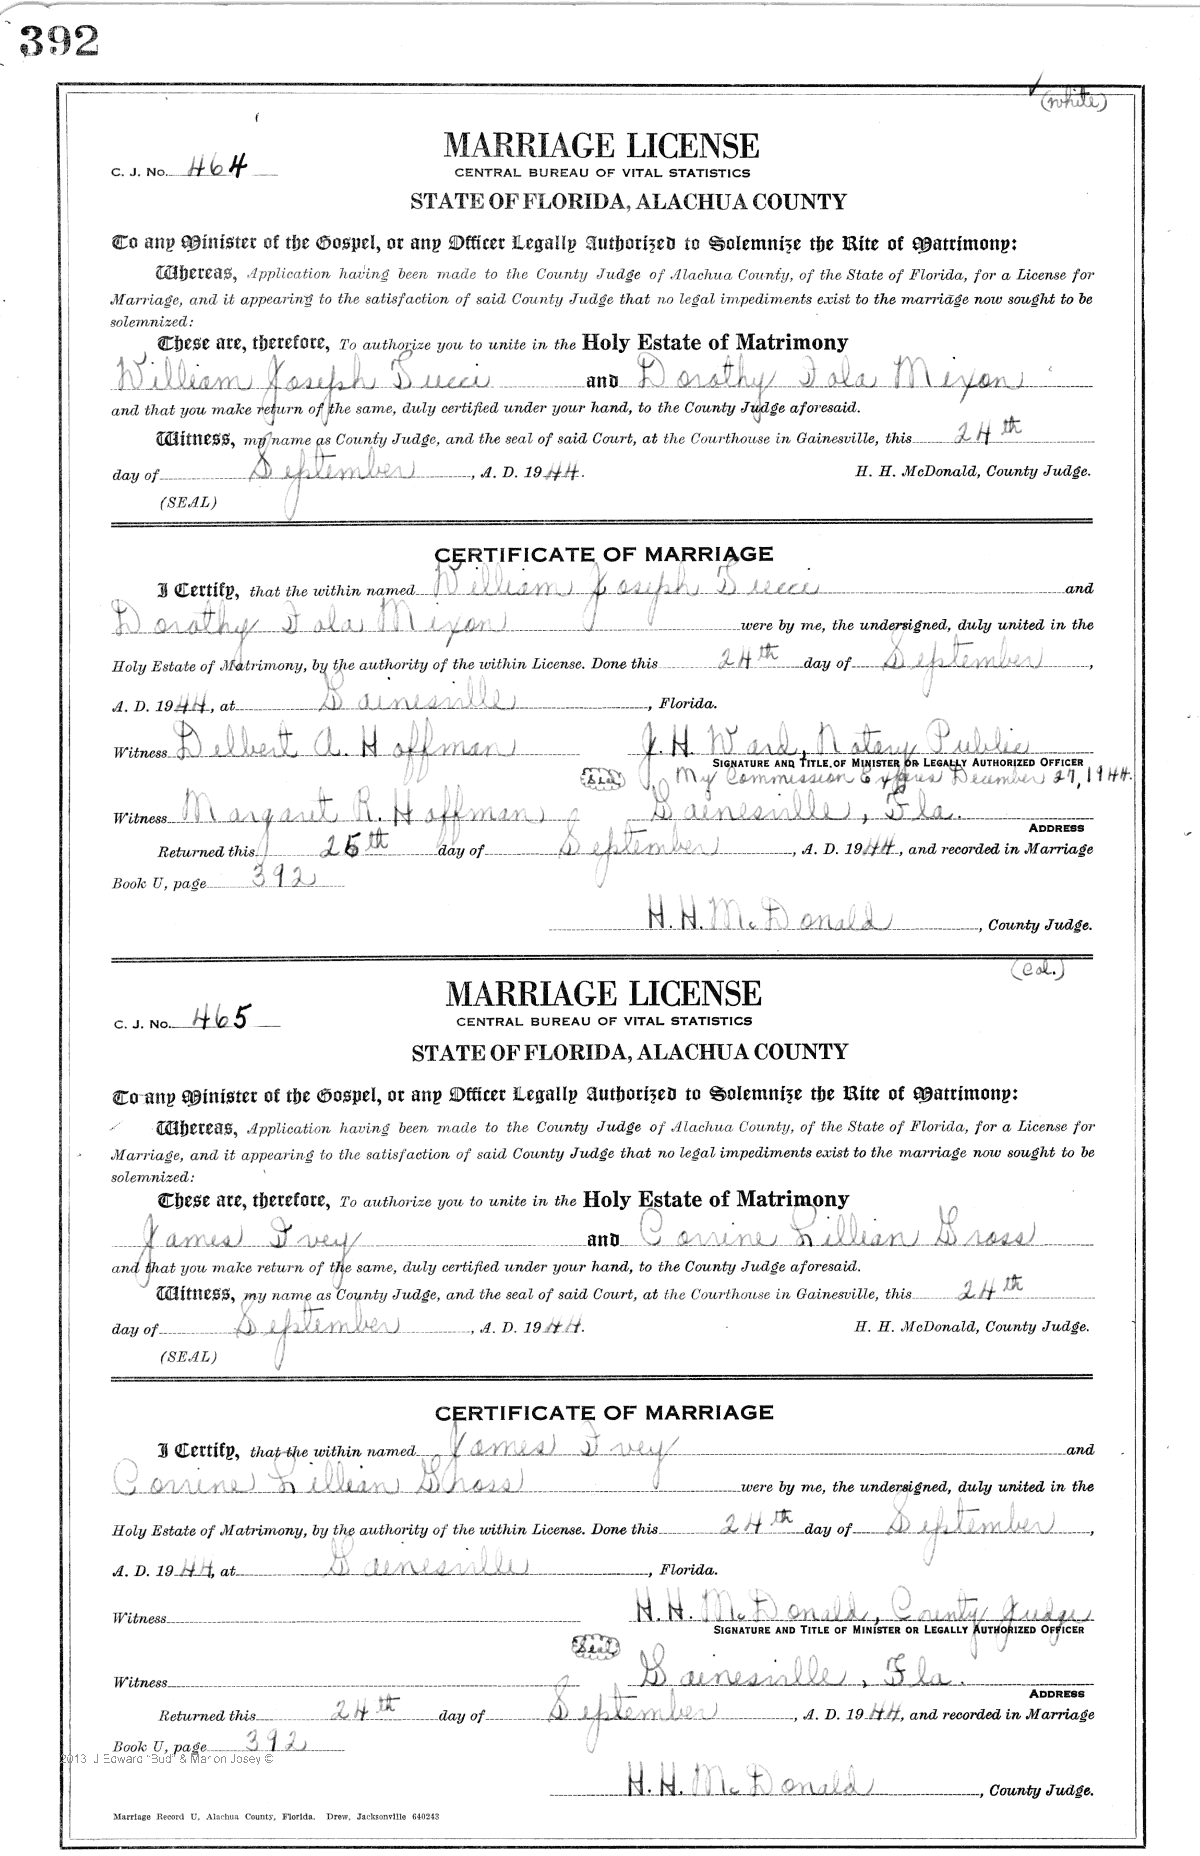 392
(white)
MARRIAGE LICENSE
C. J. No. 464
CENTRAL BUREAU OF VITAL STATISTICS
STATE OF FLORIDA, ALACHUA COUNTY
To any Minister of the Gospel, or any Officer Legally Authorized to Solemnize the Rite of Matrimony:
Whereas, Application having been made to the County Judge of Alachua County, of the State of Florida, for a License for
Marriage, and it appearing to the satisfaction of said County Judge that no legal impediments exist to the marriage now sought to be
solemnized:
These are, therefore, To authorize you to unite in the Holy Estate of Matrimony
William Joseph Tucci and Dorothy Iola Mixon
and that you make return of the same, duly certified under your hand, to the County Judge aforesaid.
Witness, my name as County Judge, and the seal of said Court, at the Courthouse in Gainesville, this 24th
day of September, A. D. 1944. H. H. McDonald, County Judge.
(SEAL)
CERTIFICATE OF MARRIAGE
I Certify, that the within named William Joseph Tucci and
Dorothy Iola Mixon were by me, the undersigned, duly united in the
Holy Estate of Matrimony, by the authority of the within License. Done this 24th day of September,
A. D. 1944, at Gainesville, Florida.
Witness Delbert A. Hoffman J. H. Ward, Notary Public
SIGNATURE AND TITLE OF MINISTER OR LEGALLY AUTHORIZED OFFICER
Seal My Commission Expires December 27, 1944.
Witness Margaret R. Hoffman Gainesville, Fla.
ADDRESS
Returned this 25th day of September, A. D. 1944, and recorded in Marriage
Book U, page 392
H. H. McDonald, County Judge.
(Col.)
MARRIAGE LICENSE
C. J. No. 465
CENTRAL BUREAU OF VITAL STATISTICS
STATE OF FLORIDA, ALACHUA COUNTY
To any Minister of the Gospel, or any Officer Legally Authorized to Solemnize the Rite of Matrimony:
Whereas, Application having been made to the County Judge of Alachua County, of the State of Florida, for a License for
Marriage, and it appearing to the satisfaction of said County Judge that no legal impediments exist to the marriage now sought to be
solemnized:
These are, therefore, To authorize you to unite in the Holy Estate of Matrimony
James Ivey and Corrine Lillian Gross
and that you make return of the same, duly certified under your hand, to the County Judge aforesaid.
Witness, my name as County Judge, and the seal of said Court, at the Courthouse in Gainesville, this 24th
day of September, A. D. 1944. H. H. McDonald, County Judge.
(SEAL)
CERTIFICATE OF MARRIAGE
I Certify, that the within named James Ivey and
Corrine Lillian Gross were by me, the undersigned, duly united in the
Holy Estate of Matrimony, by the authority of the within License. Done this 24th day of September,
A. D. 1944, at Gainesville, Florida.
Witness H. H. McDonald, County Judge
SIGNATURE AND TITLE OF MINISTER OR LEGALLY AUTHORIZED OFFICER
Seal
Witness Gainesville, Fla.
ADDRESS
Returned this 24th day of September, A. D. 1944, and recorded in Marriage
Book U, page 392
2013 J Edward "Bud" & Marion Josey ©
H. H. McDonald, County Judge.
Marriage Record U, Alachua County, Florida. Drew, Jacksonville 640243